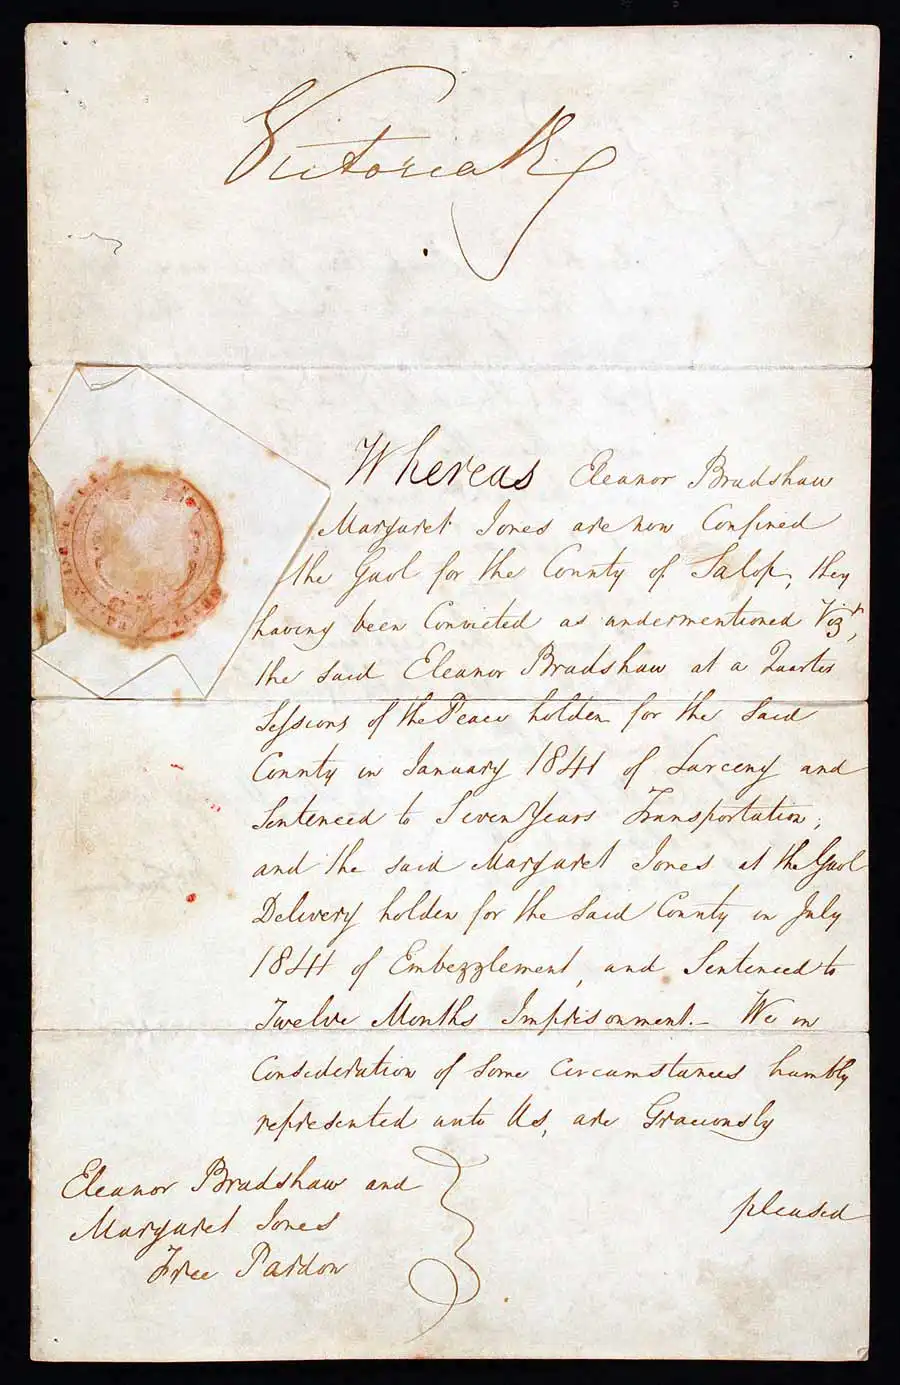 Victoria R
Whereas Eleanor Bradshaw
Margaret Jones are now Confined
the Gaol for the County of Salop, they
having been Convicted as undermentioned Vizt,
the said Eleanor Bradshaw at a Quarter
Sessions of the Peace holden for the Said
County in January 1841 of Larceny and
Sentenced to Seven Years Transportation;
and the said Margaret Jones at the Gaol
Delivery holden for the Said County in July
1841 of Embezzlement, and Sentenced to
Twelve Months Imprisonment.— We in
Consideration of Some Circumstances humbly
represented unto Us, are Graciously
pleased
Eleanor Bradshaw and
Margaret Jones
Free Pardon